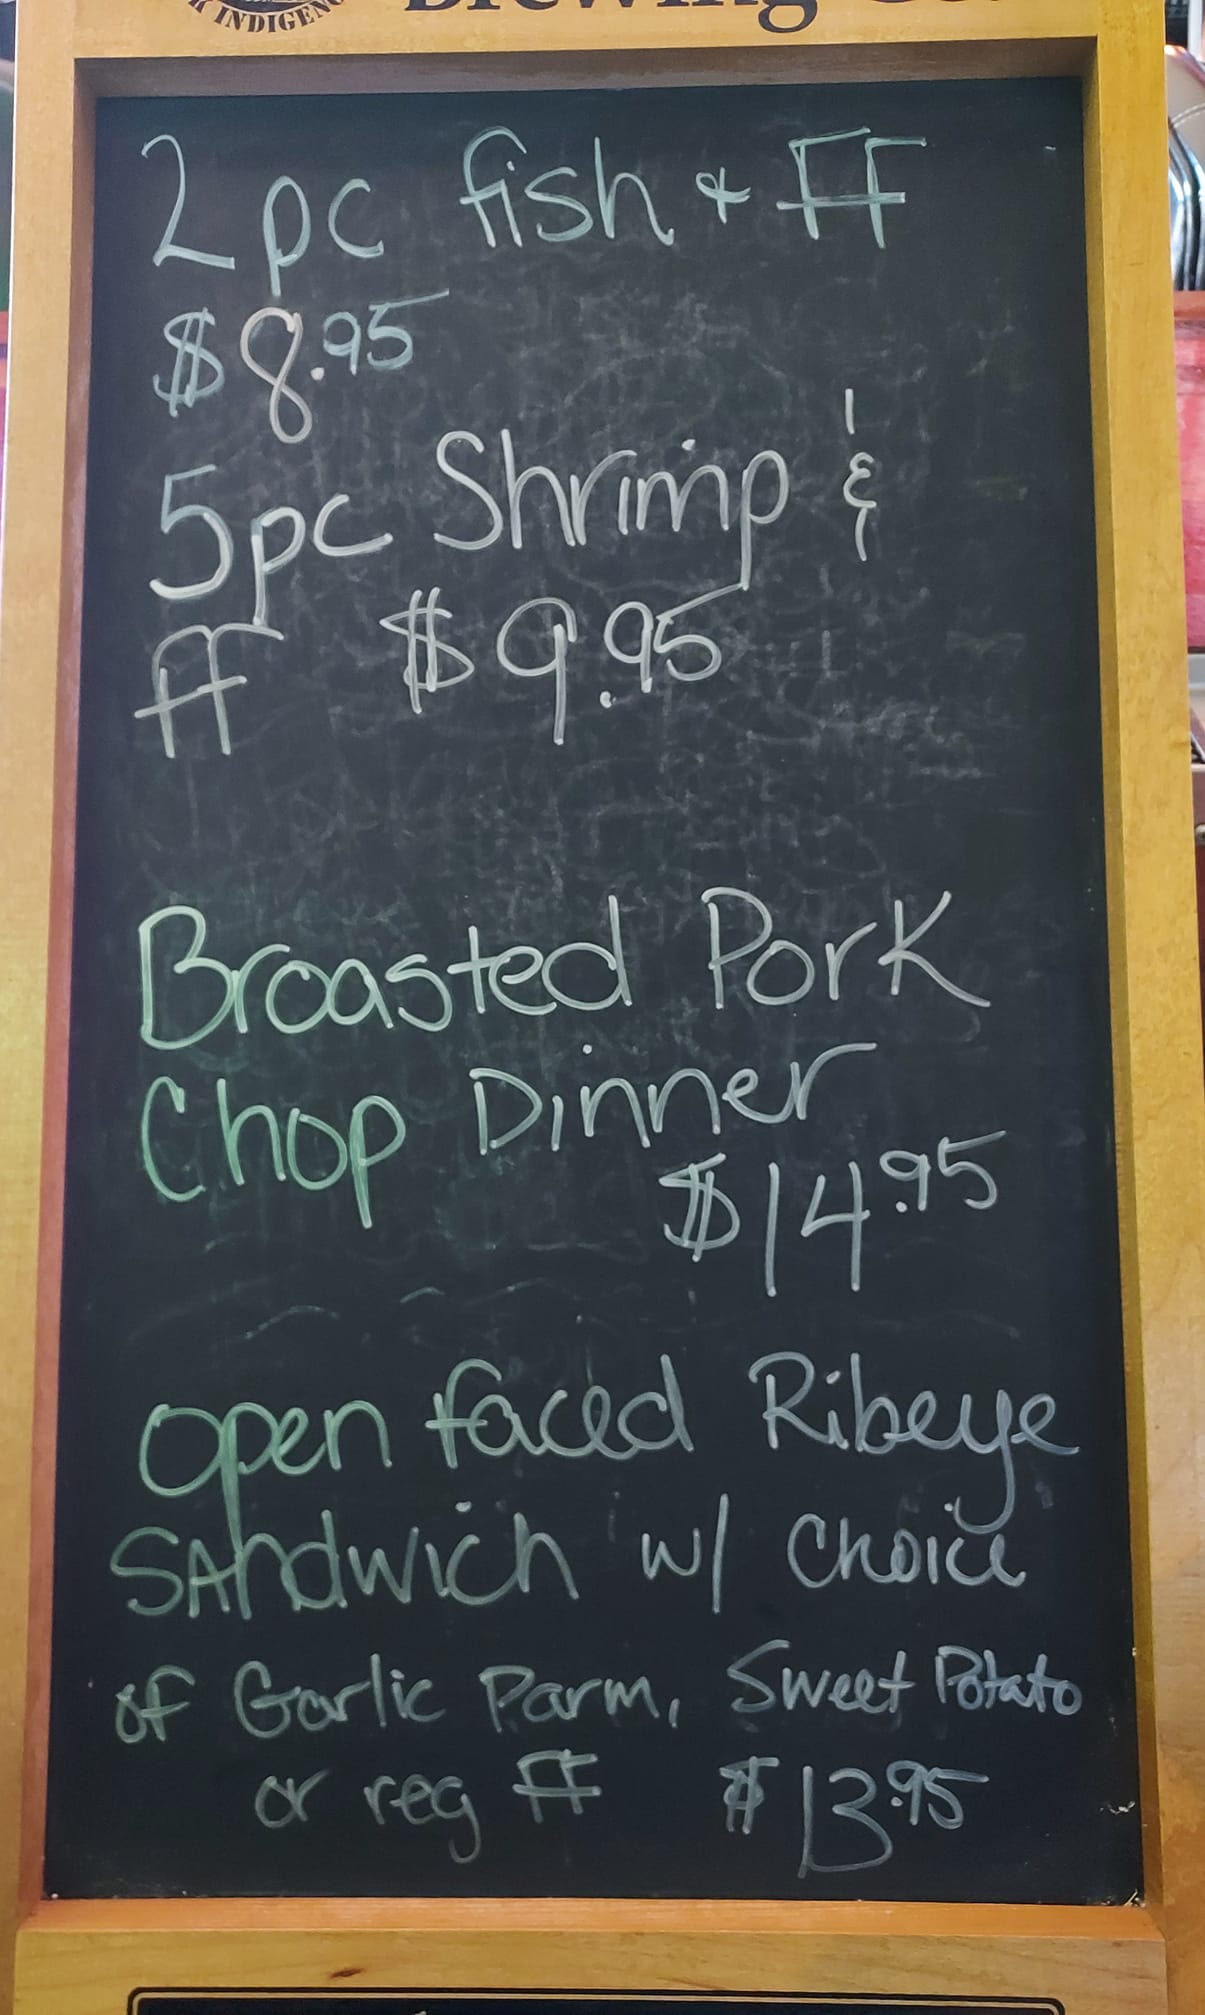 INDIGEN
Brewing Co.
2pc fish & FF
$8.95
5pc Shrimp &
ff $9.95
Broasted Pork
Chop Dinner
$14.95
open faced Ribeye
SANdwich w/ Choice
of Garlic Parm, Sweet Potato
or reg FF $13.95